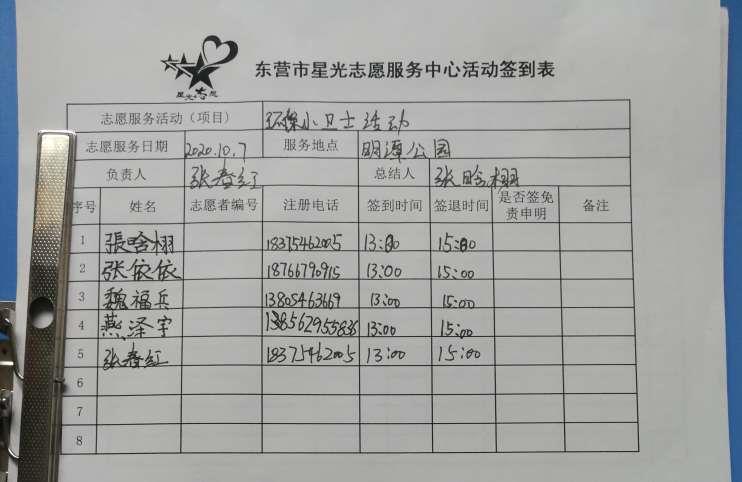 星光志愿
东营市星光志愿服务中心活动签到表
志愿服务活动（项目） 环保小卫士活动
志愿服务日期 2020.10.7 服务地点 明潭公园
负责人 张春红 总结人 张晗栩
序号 姓名 志愿者编号 注册电话 签到时间 签退时间 是否签免责申明 备注
1 張晗栩 18375462005 13:00 15:00
2 张依依 18766790915 13:00 15:00
3 魏福兵 13805463669 13:00 15:00
4 燕泽宇 13:00 15:00
5 张春红 18375462005 13:00 15:00
6
7
8